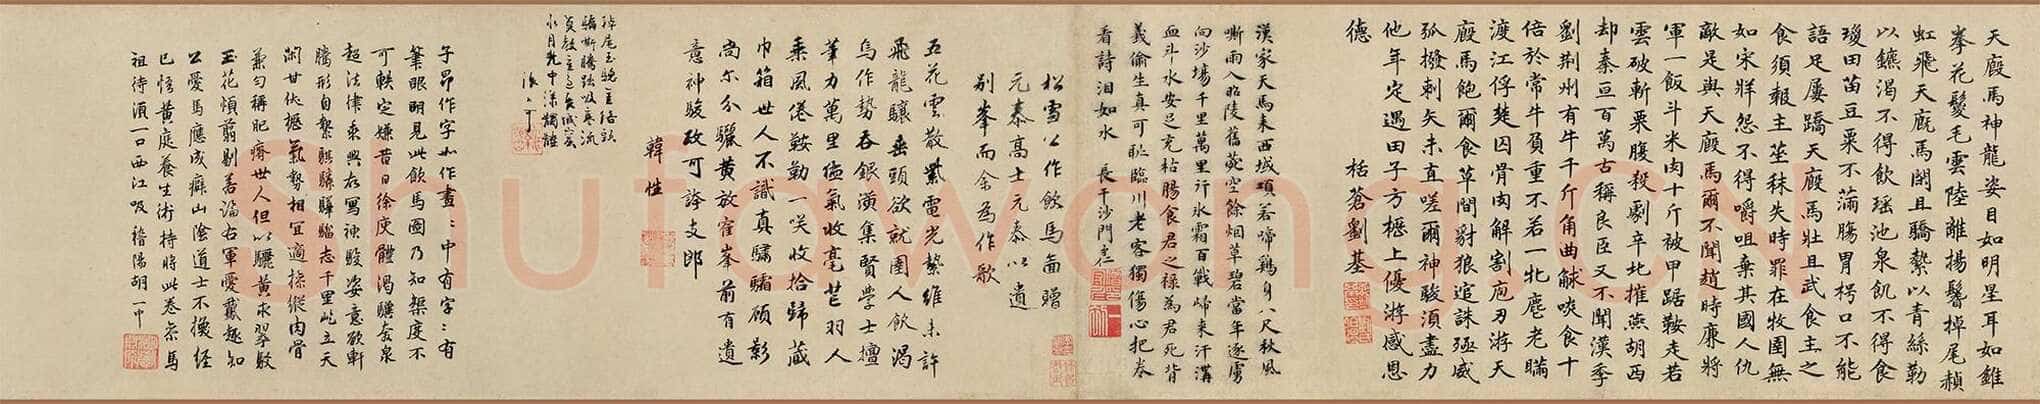 天廄馬神龍姿目如明星耳如錐
拳花鬉毛雲陸離揚鬐掉尾赬
虹飛天廄馬閑且驕縶以青絲勒
以鑣渴不得飲瑶池泉飢不得食
瓊田苗豆粟不滿膓胃枵口不能
語足屢蹻天廄馬壯且武食主之
食須報主莝秣失時罪在牧圉無
如宋牂怨不得嚼咀棄其國人仇
敵是與天廄馬爾不聞趙時廉將
軍一飯斗米肉十斤被甲踞鞍走若
雲破斬栗腹殺劇辛北摧燕胡西
却秦亘百萬古稱良臣又不聞漢季
劉荆州有牛千斤角曲觩啖食十
倍於常牛負重不若一牝麈老瞞
渡江俘楚囚骨肉解割庖刃游天
廄馬飽爾食草間豺狼逭誅殛威
孤撥剌矢未直嗟爾神駿湏盡力
他年定遇田子方櫪上優游感恩
德
栝蒼劉基
漢家天馬来西域項若啼鷄身八尺秋風
嘶雨入昭陵舊薨空餘烟草碧當年逐虜
向沙場千里萬里行氷霜百戰歸来汗溝
血斗水安足充枯腸食君之禄為君死背
義偷生真可恥臨川老客獨傷心把卷
看詩淚如水
長干沙門
松雪公作飲馬啚贈
元泰高士元泰以遺
别峯而余為作歌
五花雲散紫電光縶維未許
飛龍驤垂頭欲就圉人飲渴
烏作勢吞銀潢集賢學士擅
筆力萬里
氣收毫芒羽人
乘風倦鞍勒一咲收拾歸蔵
巾箱世人不識真驌驦顧影
尚尔分驪黄放崔峯前有遺
意神駿政可誇支郎
韓性
掉尾
驕嘶騰踏吸寒流
水月光中
子昂作字如作畫：中有字：有
筆眼明見此飲馬圖乃知榘度不
可軼定嫌昔日徐庾體渴驥奔泉
超法律乘興
寫神駿姿意欲軒
騰形自縶騏驎驊騮志千里屹立天
閑甘伏櫪氣勢相宜適操縱肉骨
兼匀稱肥瘠世人但以驪黄求翠駮
玉花慵翦剔善論右軍愛鵞趣知
公愛馬應成癖山隂道士不換經
已悟黄庭養生術持將此卷示馬
祖待湏一口西江吸稽陽胡一中
Shufawang.CN